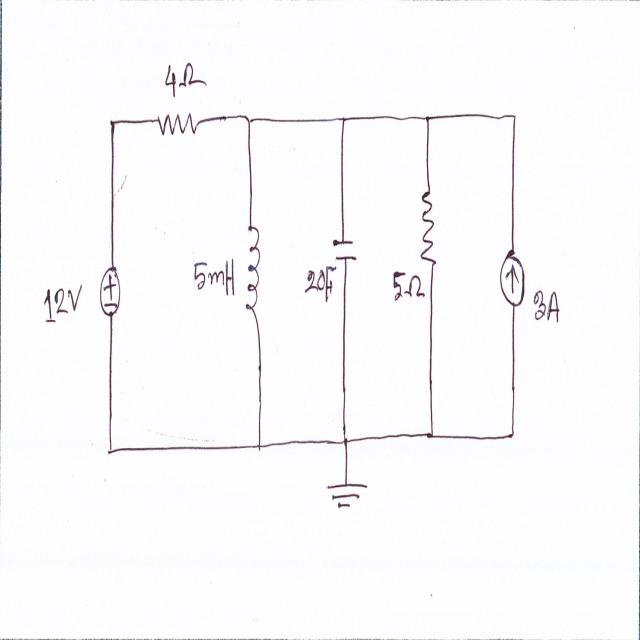 4Ω
12V
5mH
20F
5Ω
3A